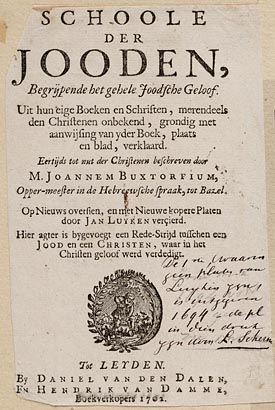 SCHOOLE
DER
JOODEN,
Begrijpende het gehele Joodsche Geloof.
Uit hun eige Boeken en Schriften, merendeels
den Christenen onbekend, grondig met
aanwijsing van yder Boek, plaats
en blad, verklaard.
Eertijds tot nut der Christenen beschreven door
M. JOANNEM BUXTORFIUM,
Opper-meester in de Hebreewsche spraak, tot Bazel.
Op Nieuws oversien, en met Nieuwe kopere Platen
door JAN LUYKEN verçierd.
Hier agter is bygevoegt een Rede-Strijd tusschen een
JOOD en een CHRISTEN, waar in het
Christen geloof werd verdedigt.
De
waarin
geen plates van
Luyken
is
1694
in
druk
Tot LEYDEN.
By DANIEL VAN DEN DALEN,
En HENDRIK VAN DAMME,
Boekverkopers 1702.